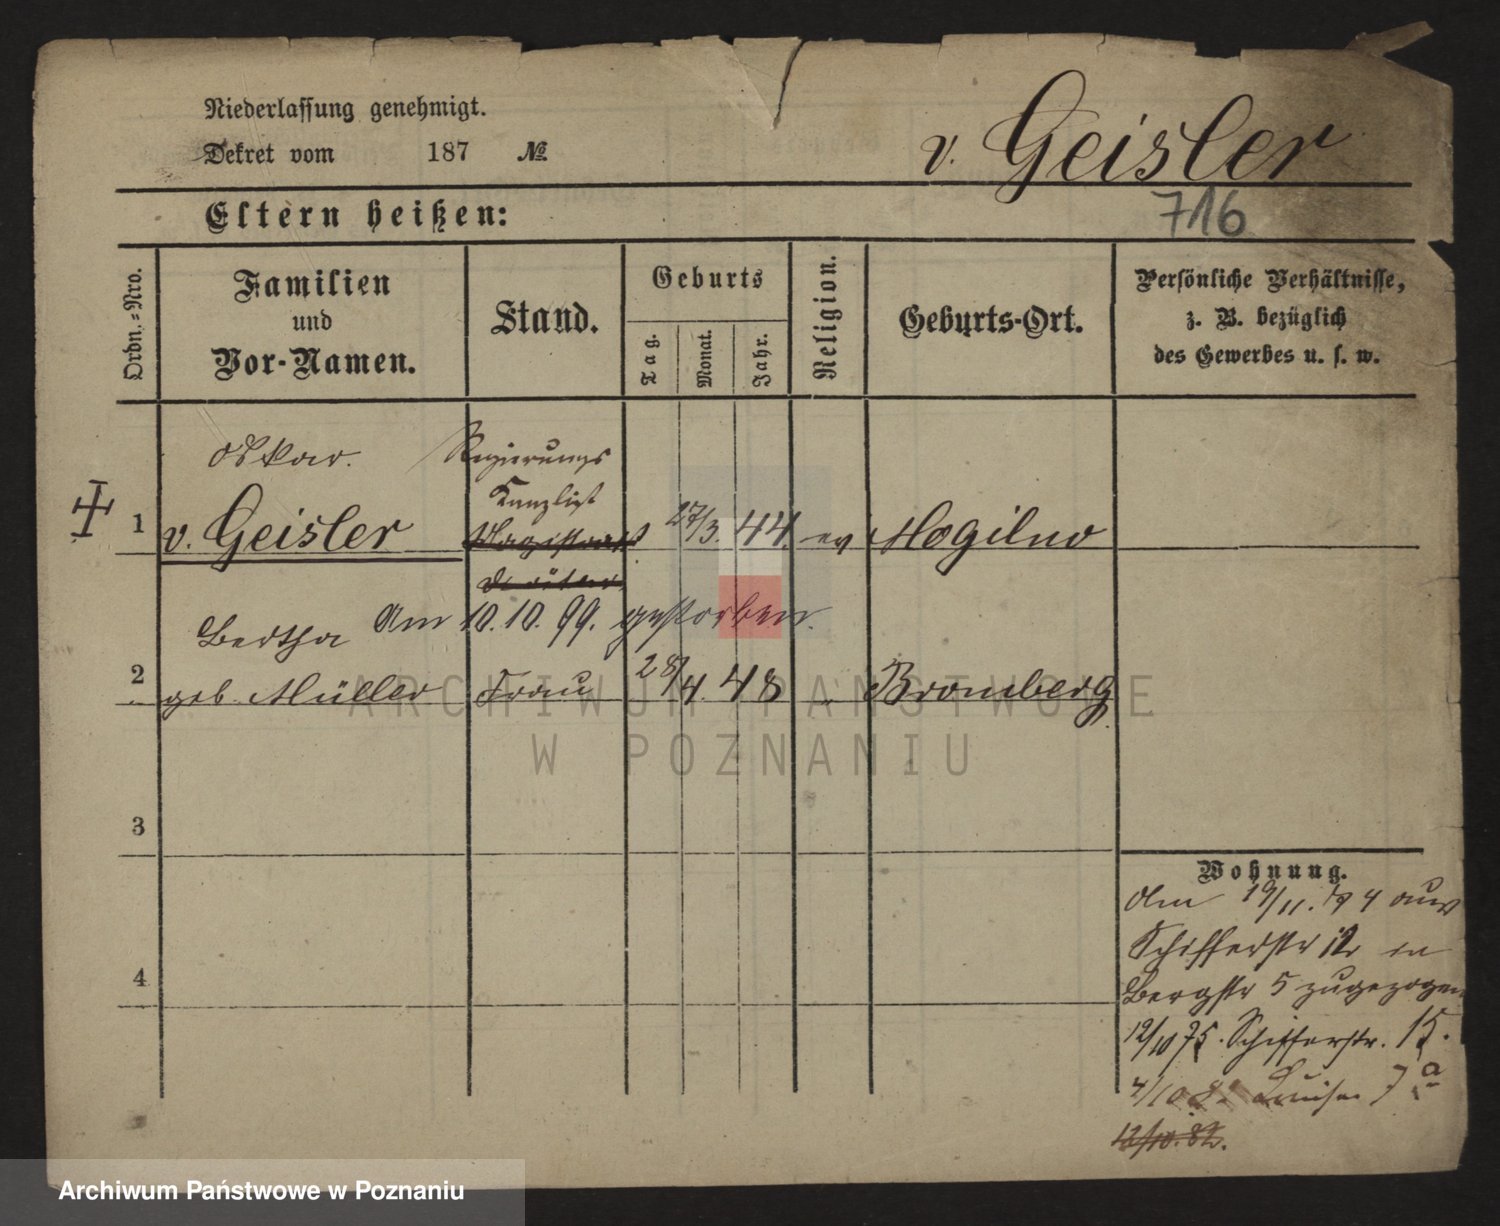 Niederlassung genehmigt.
Dekret vom 187 №
v. Geisler
716
Eltern heißen:
Ordn.-Nro.
Familien
und
Vor-Namen.
Stand.
Geburts
Tag.
Monat.
Jahr.
Religion.
Geburts-Ort.
Persönliche Verhältnisse,
z. B. bezüglich
des Gewerbes u. s. w.
Oskar. Regierungs
Kanzlist
1 v. Geisler 27/3. 44. ev Mogilno
Am 10. 10. 99. gestorben.
Bertha
2 geb. Müller Frau 28/4. 48 " Bromberg
ARCHIWUM PAŃSTWOWE
W POZNANIU
3
4
Wohnung.
19/11. 74 aus
Schifferstr 12 in
Bergstr 5 zugezogen
12/10 75. Schifferstr. 15.
4/10 Luisen 7 a
12/10. 82.
Archiwum Państwowe w Poznaniu